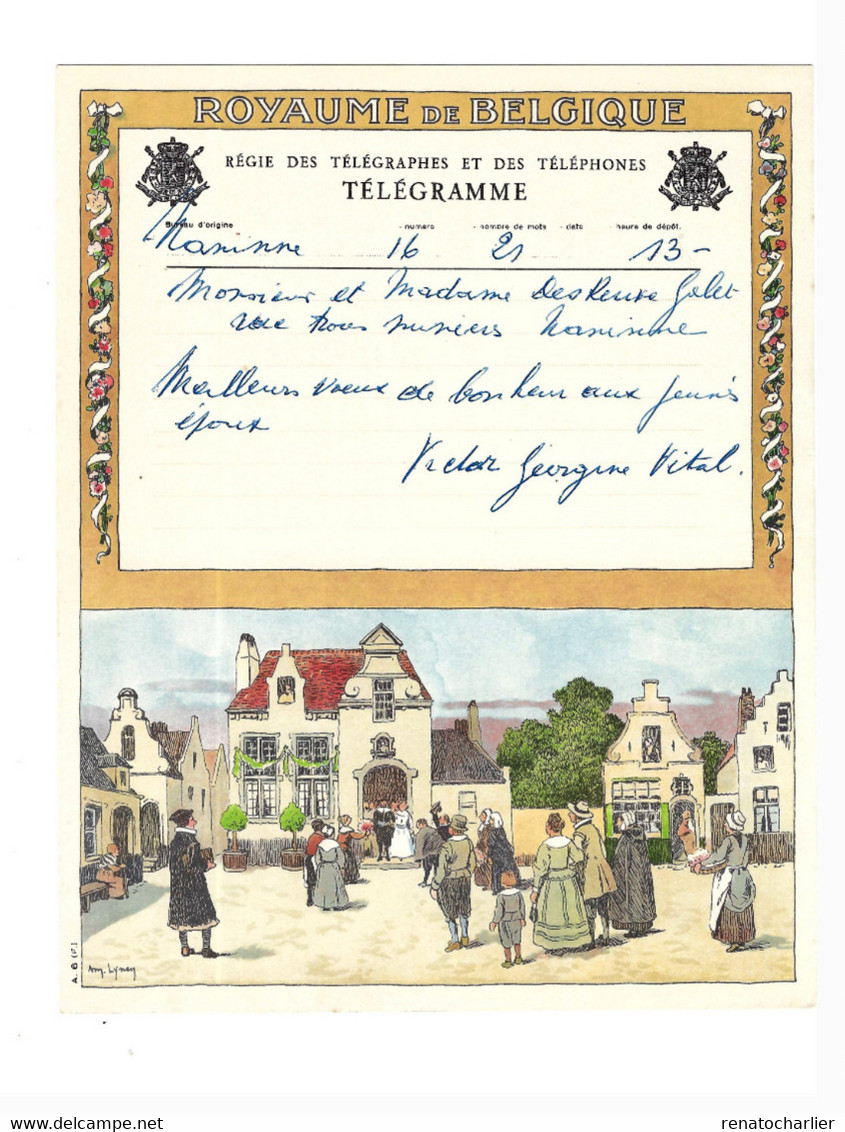 ROYAUME DE BELGIQUE
RÉGIE DES TÉLÉGRAPHES ET DES TÉLÉPHONES
TÉLÉGRAMME
Bureau d'origine - numéro - nombre de mots - date - heure de dépôt.
Naninne 16 21 13 -
Monsieur et Madame
rue trois Naninne
Meilleurs vœux de bonheur aux jeunes
époux
Victor Georgine Vital.
A. 6 (F.)
Am. Lynen
renatocharlier